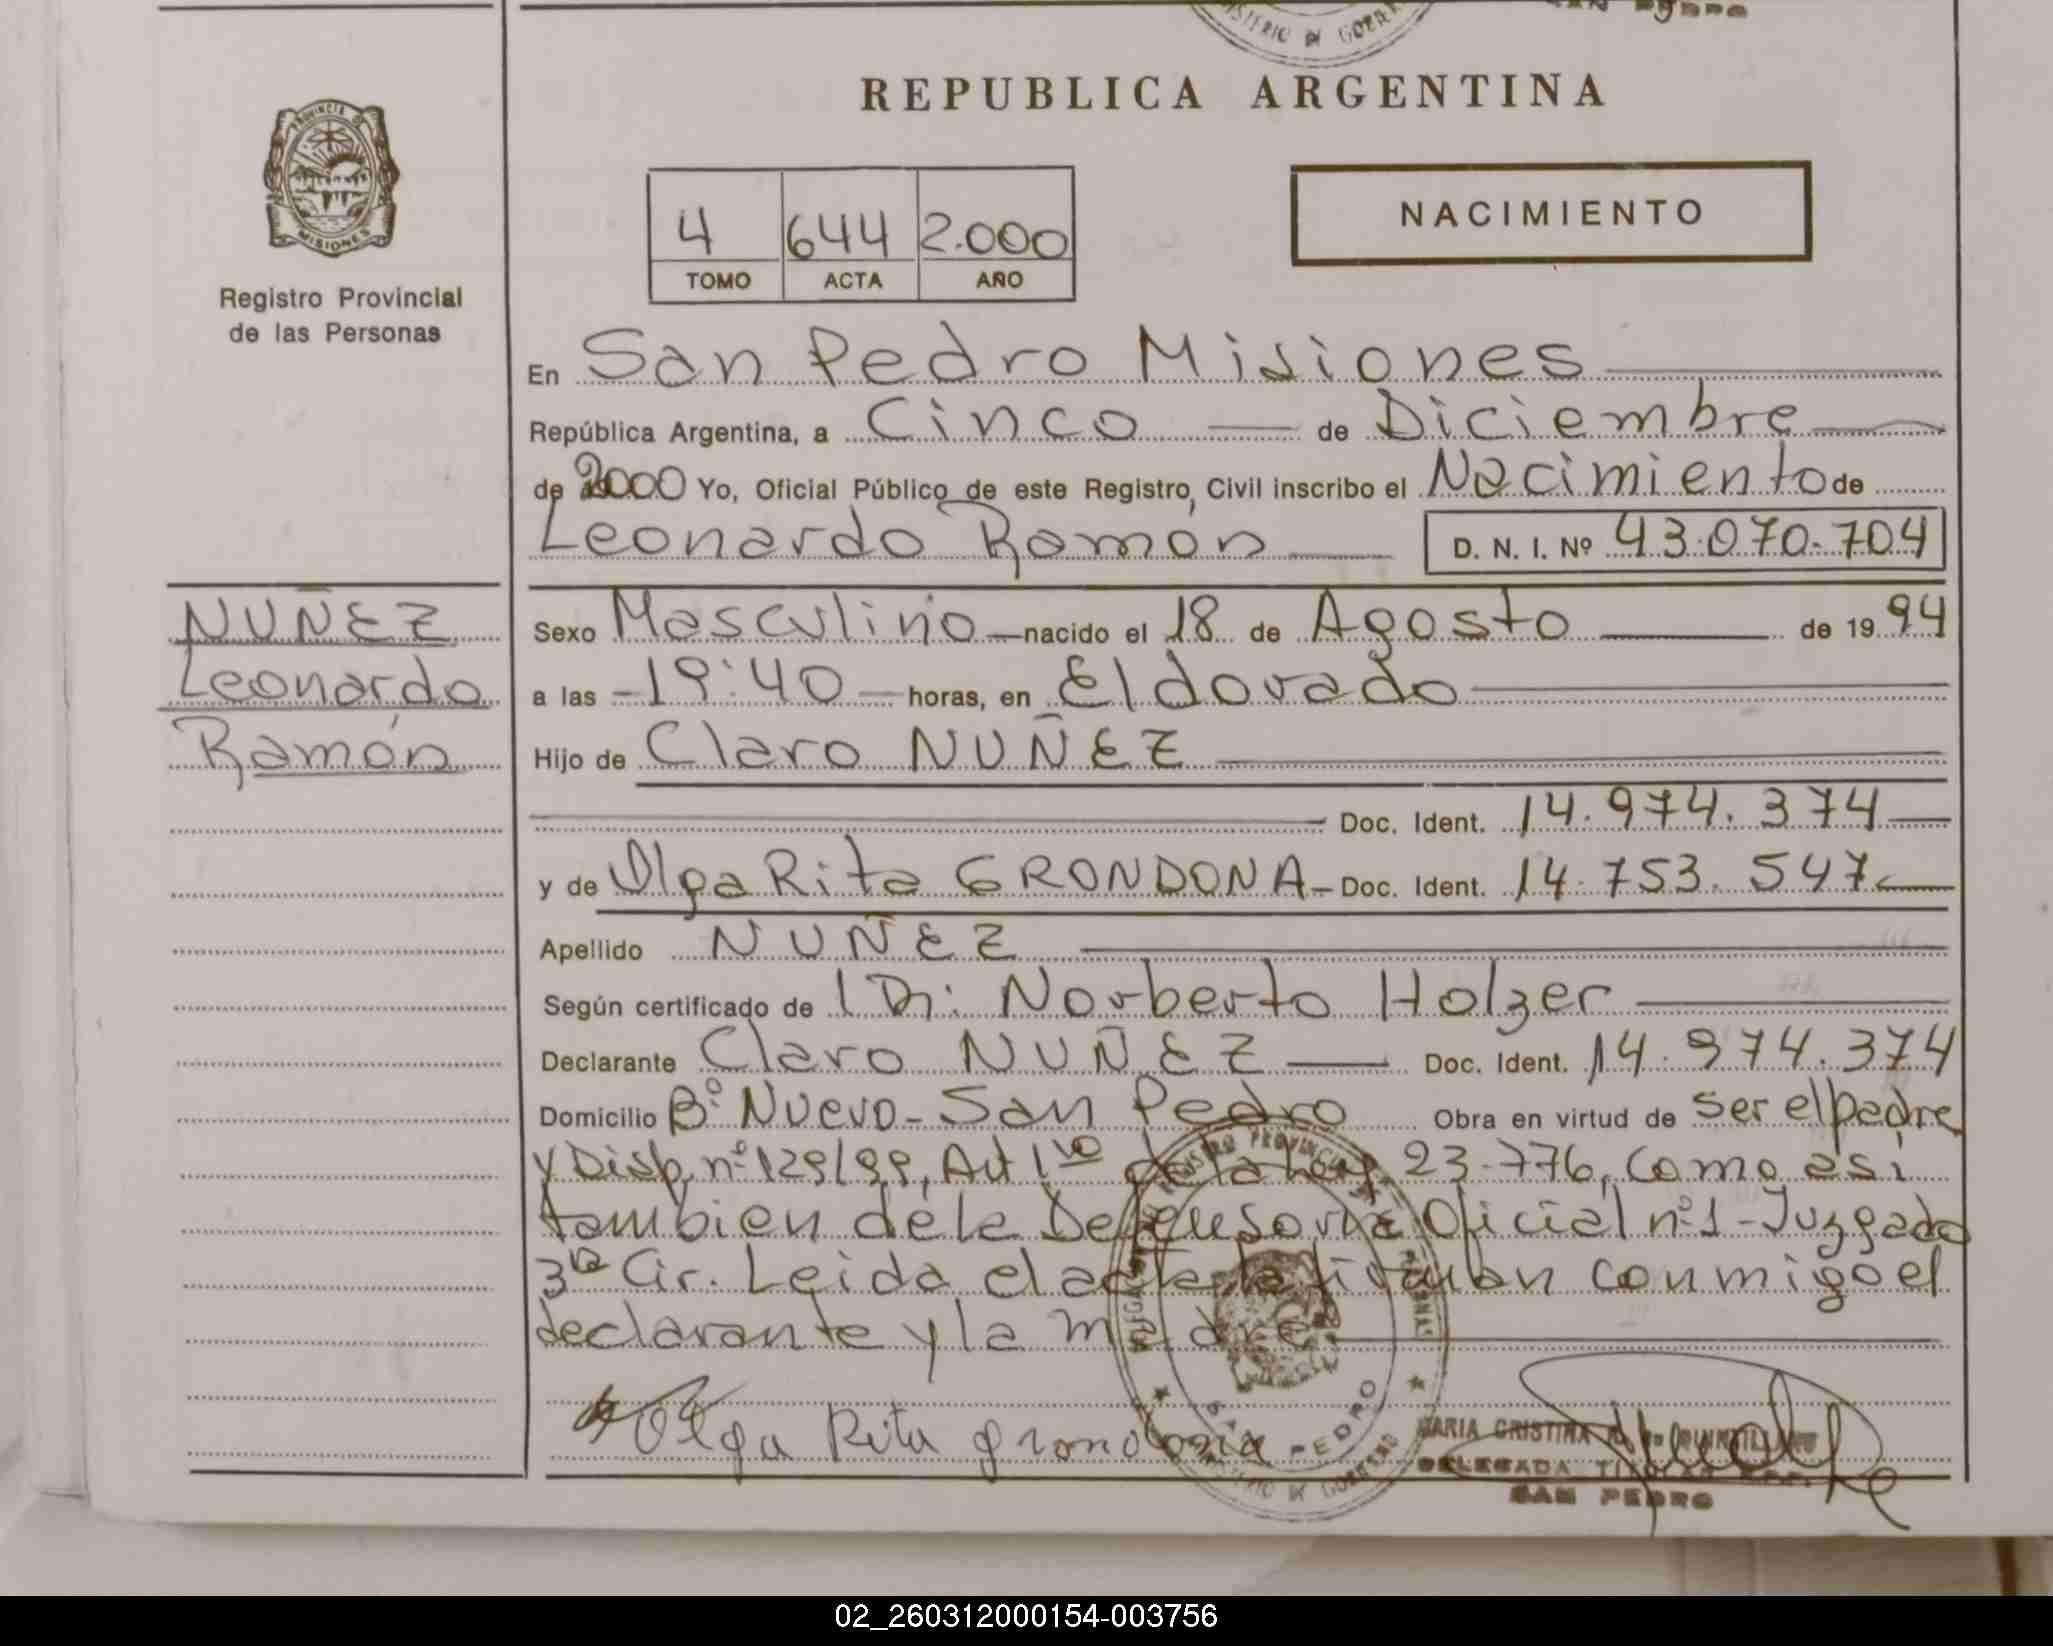 REPUBLICA ARGENTINA
PROVINCIA DE
MISIONES
Registro Provincial
de las Personas
4 644 2.000
TOMO ACTA AÑO
NACIMIENTO
En San Pedro Misiones
República Argentina, a Cinco de Diciembre
de 2000 Yo, Oficial Público de este Registro Civil inscribo el Nacimiento de
Leonardo Ramón D. N. I. Nº 43.070.704
NUÑEZ
Leonardo
Ramón
Sexo Masculino nacido el 18 de Agosto de 1994
a las 19:40 horas, en Eldorado
Hijo de Claro NUÑEZ
Doc. Ident. 14.974.374
y de Olga Rita GRONDONA - Doc. Ident. 14.753.547
Apellido NUÑEZ
Según certificado de Dr: Norberto Holzer
Declarante Claro NUÑEZ Doc. Ident. 14.974.374
Domicilio Bº Nuevo - San Pedro Obra en virtud de ser el padre
y Disp. nº 129/99, Art 1ro de la ley 23.776, como asi
tambien de la Defensoria Oficial nº 1 - Juzgado
3ra Cir. Leida el acta la firman conmigo el
declarante y la madre
Olga Rita grondona
MARIA CRISTINA
DELEGADA TITULAR
SAN PEDRO
SAN PEDRO
02_260312000154-003756